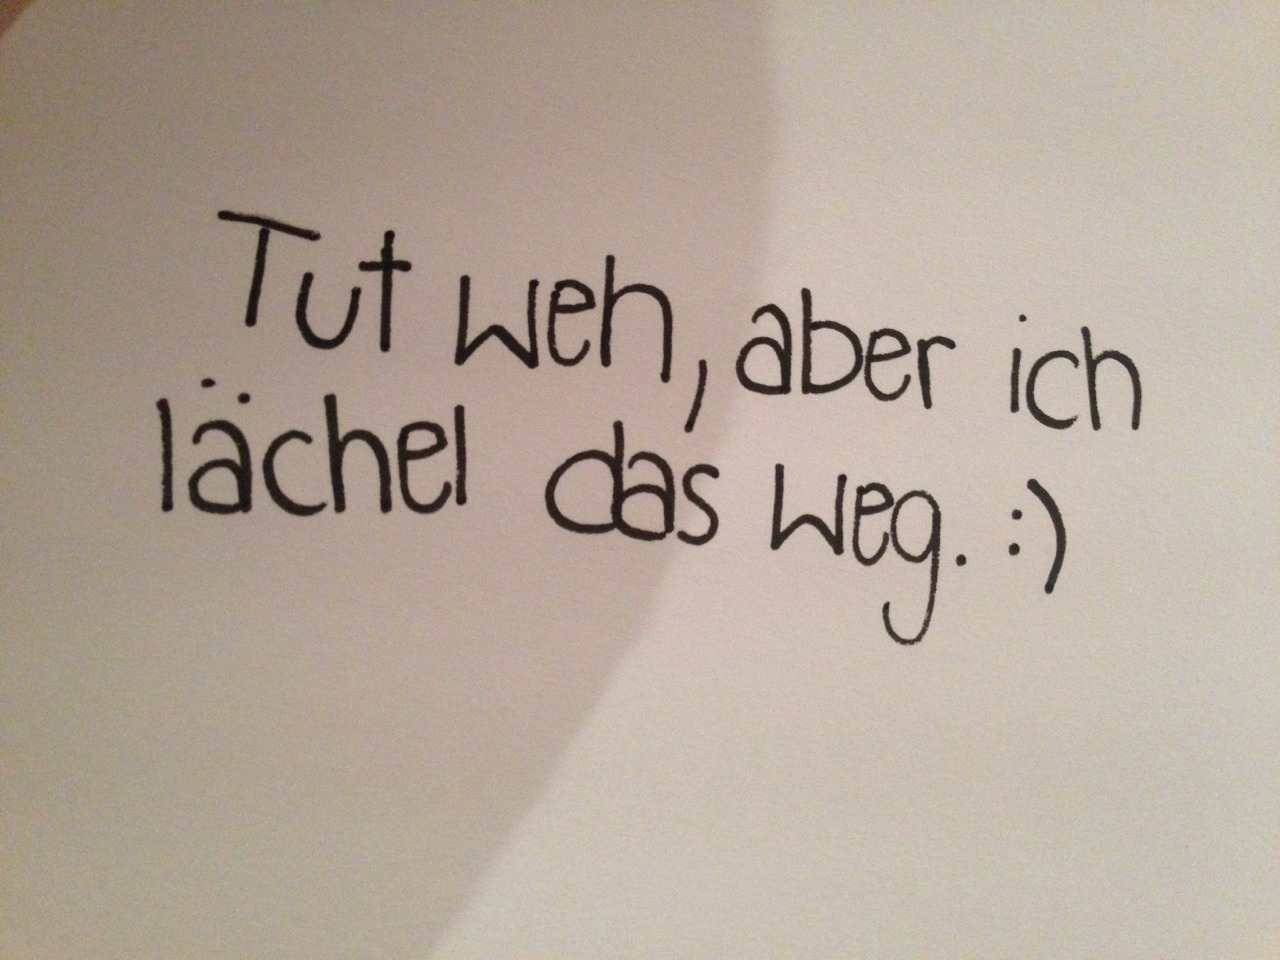 Tut weh, aber ich
lächel das weg. :)